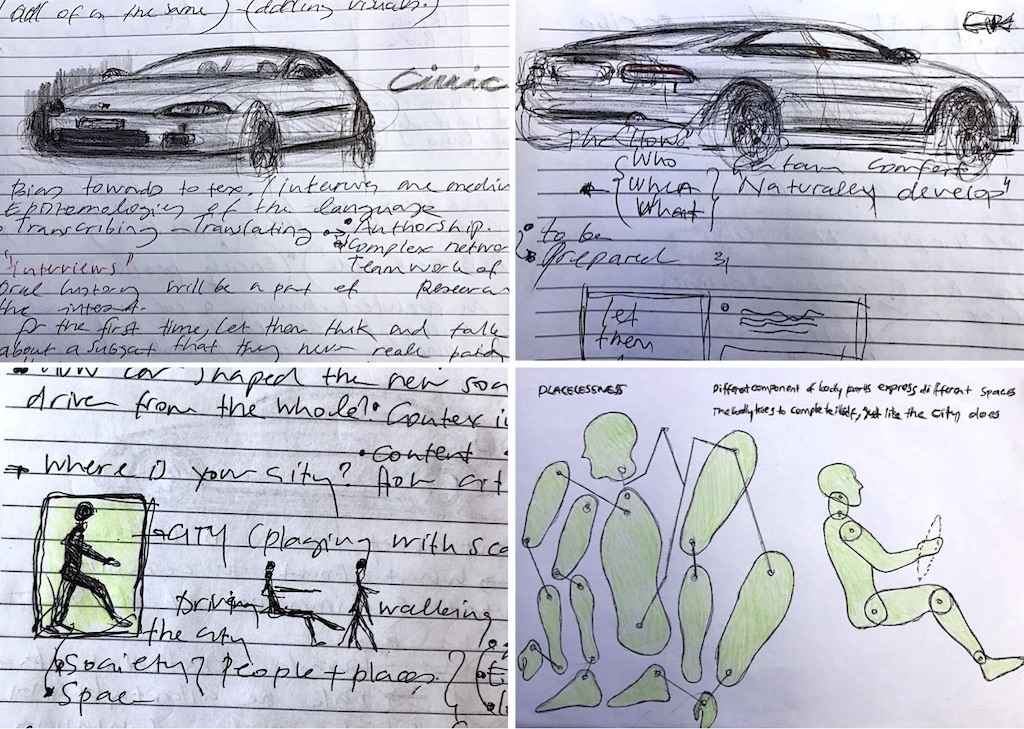 all of on the same) (dabling visuals.)
Civic
Bias towards to text / interviw are
Epistemologies of the language
Transcribing - Translating → • Authorship.
• Complex networ
Teamwork of
"Interviews"
Oral history will be a part of Research
the interst.
for the first time, Let them thik and talk
about a subject that they never
The "How"
Who
When
What
comfort
"Naturally develop"
• to be
Prepared
Let
them
• How car shaped the new soc
drive from the whole? • Contex i
• Content
⇒ Where is your city?
→ CITY (playing with sca
Driving
the city
walking
Society? People + places?
• Spac
PLACELESSNESS
Different component of body parts express different spaces
The body tries to complete itself, just like the city does